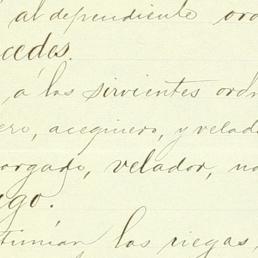 al dependiente
cedes.
, á los sirvientes ord
ero, acequiero, y velad
argado, velador,
go.
los riegas,